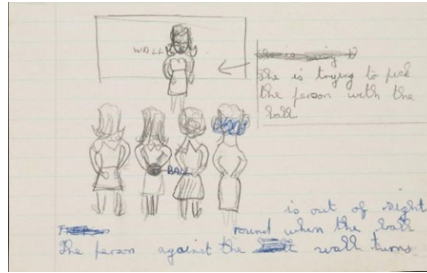 WALL
She is trying to pick
the person with the
ball
BALL
is out of sight
round when the ball
The person against the wall turns